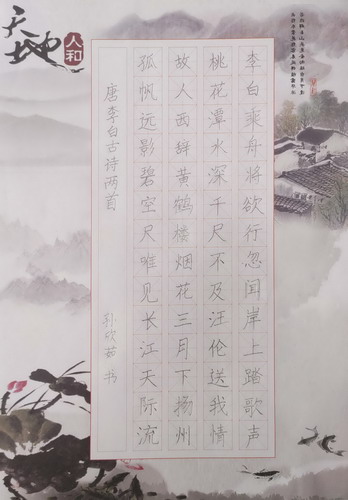 天地
人和
李白乘舟将欲行忽闻岸上踏歌声
桃花潭水深千尺不及汪伦送我情
故人西辞黄鹤楼烟花三月下扬州
孤帆远影碧空尽唯见长江天际流
唐李白古诗两首
孙欣茹书